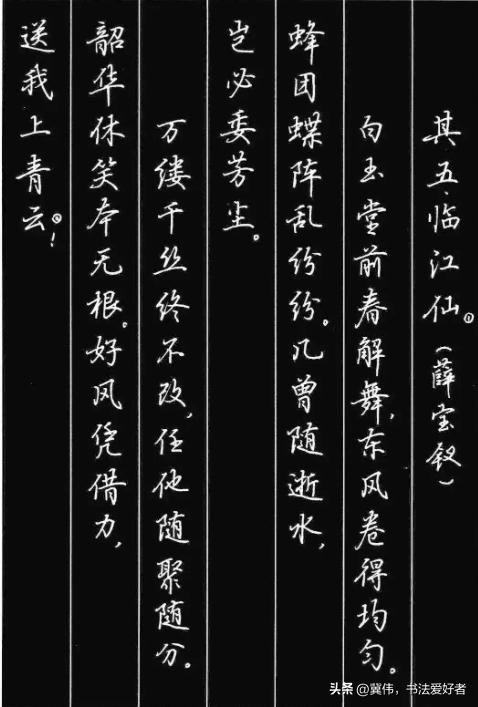 其五·临江仙。①(薛宝钗)
白玉堂前春解舞,东风卷得均匀。
蜂团蝶阵乱纷纷。几曾随逝水,
岂必委芳尘。
万缕千丝终不改,任他随聚随分。
韶华休笑本无根。好风凭借力,
送我上青云②!
头条 @冀伟,书法爱好者